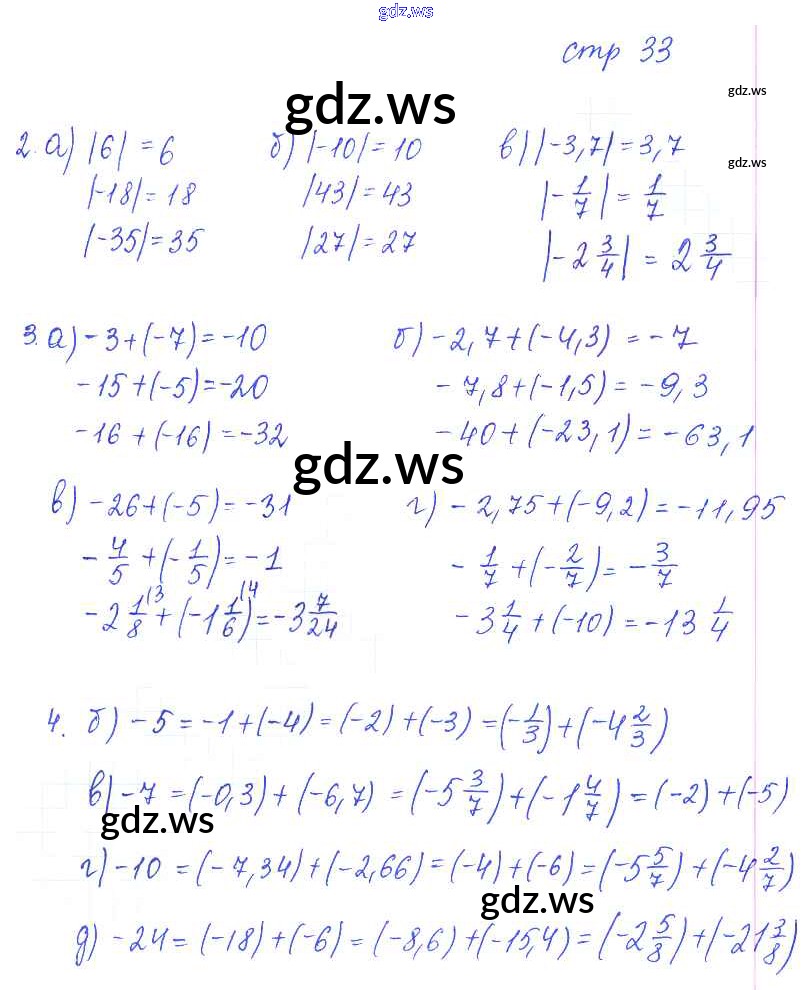 gdz.ws
стр 33
gdz.ws
gdz.ws
2. а) |6| = 6 б) |-10| = 10 в) |-3,7| = 3,7
gdz.ws
|-18| = 18 |43| = 43 |-1/7| = 1/7
|-35| = 35 |27| = 27 |-2 3/4| = 2 3/4
3. а) -3 + (-7) = -10 б) -2,7 + (-4,3) = -7
-15 + (-5) = -20 -7,8 + (-1,5) = -9,3
-16 + (-16) = -32 -40 + (-23,1) = -63,1
gdz.ws
в) -26 + (-5) = -31 г) -2,75 + (-9,2) = -11,95
-4/5 + (-1/5) = -1 -1/7 + (-2/7) = -3/7
-2 1/8 (3 + (-1 1/6 (4) = -3 7/24 -3 1/4 + (-10) = -13 1/4
4. б) -5 = -1 + (-4) = (-2) + (-3) = (-1/3) + (-4 2/3)
в) -7 = (-0,3) + (-6,7) = (-5 3/7) + (-1 4/7) = (-2) + (-5)
gdz.ws
г) -10 = (-7,34) + (-2,66) = (-4) + (-6) = (-5 5/7) + (-4 2/7)
gdz.ws
д) -24 = (-18) + (-6) = (-8,6) + (-15,4) = (-2 5/8) + (-21 3/8)